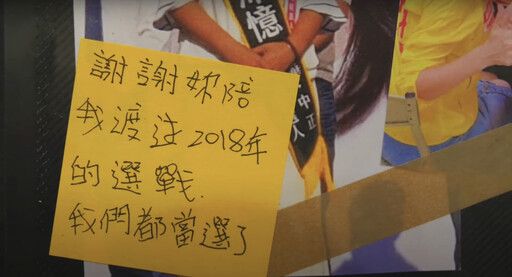 謝謝妳陪
我渡过2018年
的選戰.
我們都當選了
憶
中正
人